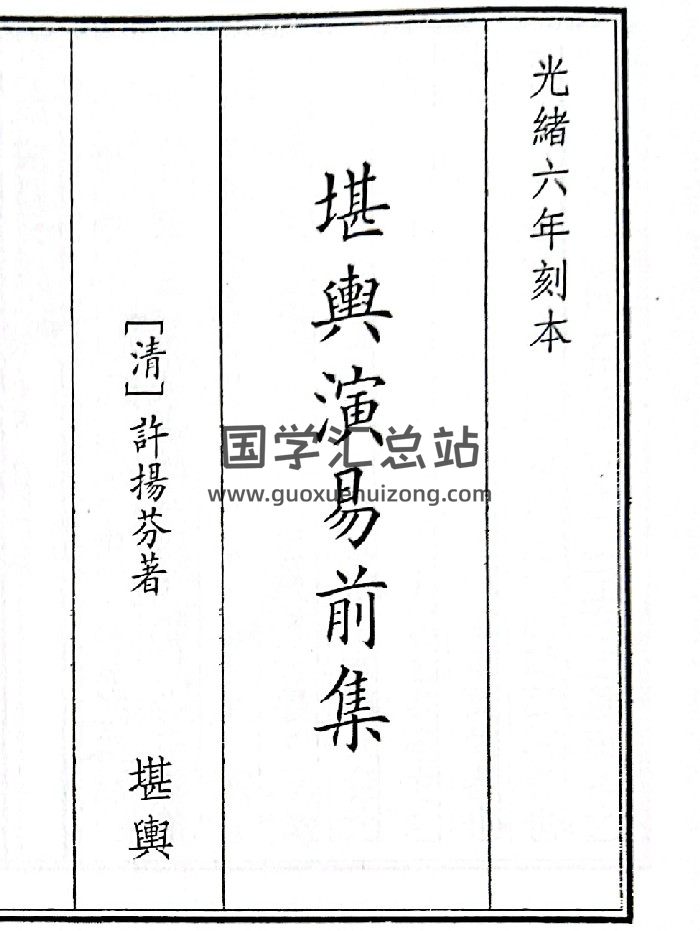 光緒六年刻本
堪輿演易前集
[清]許揚芬著
堪輿
国学汇总站
www.guoxuehuizong.com